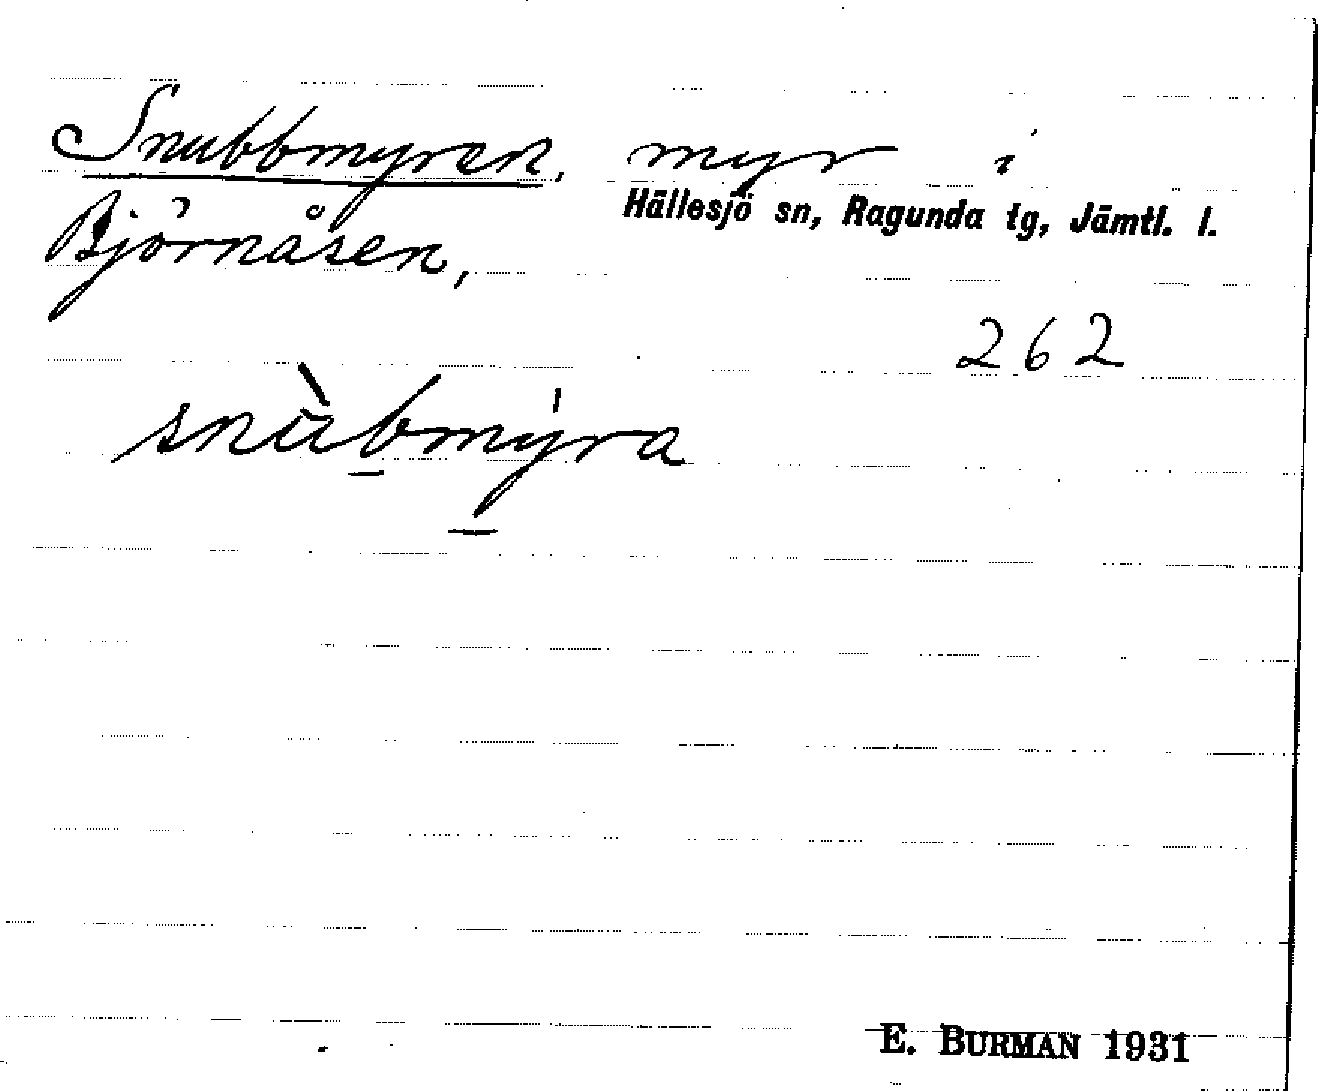 Snubbmyren, myr i
Hällesjö sn, Ragunda tg, Jämtl. l.
Björnåsen,
262
snùb̲mýra
E. BURMAN 1931